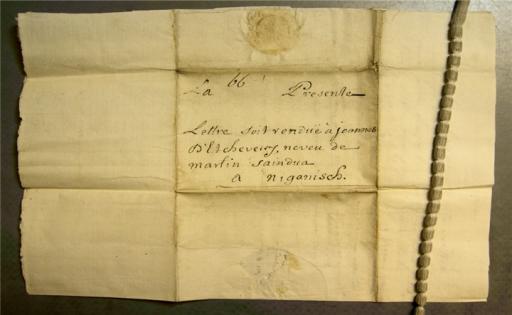 66
La Presente
Lettre soit rendüe à joannes
D'Etcheverry, neveu de
martin Saindua
a niganisch.